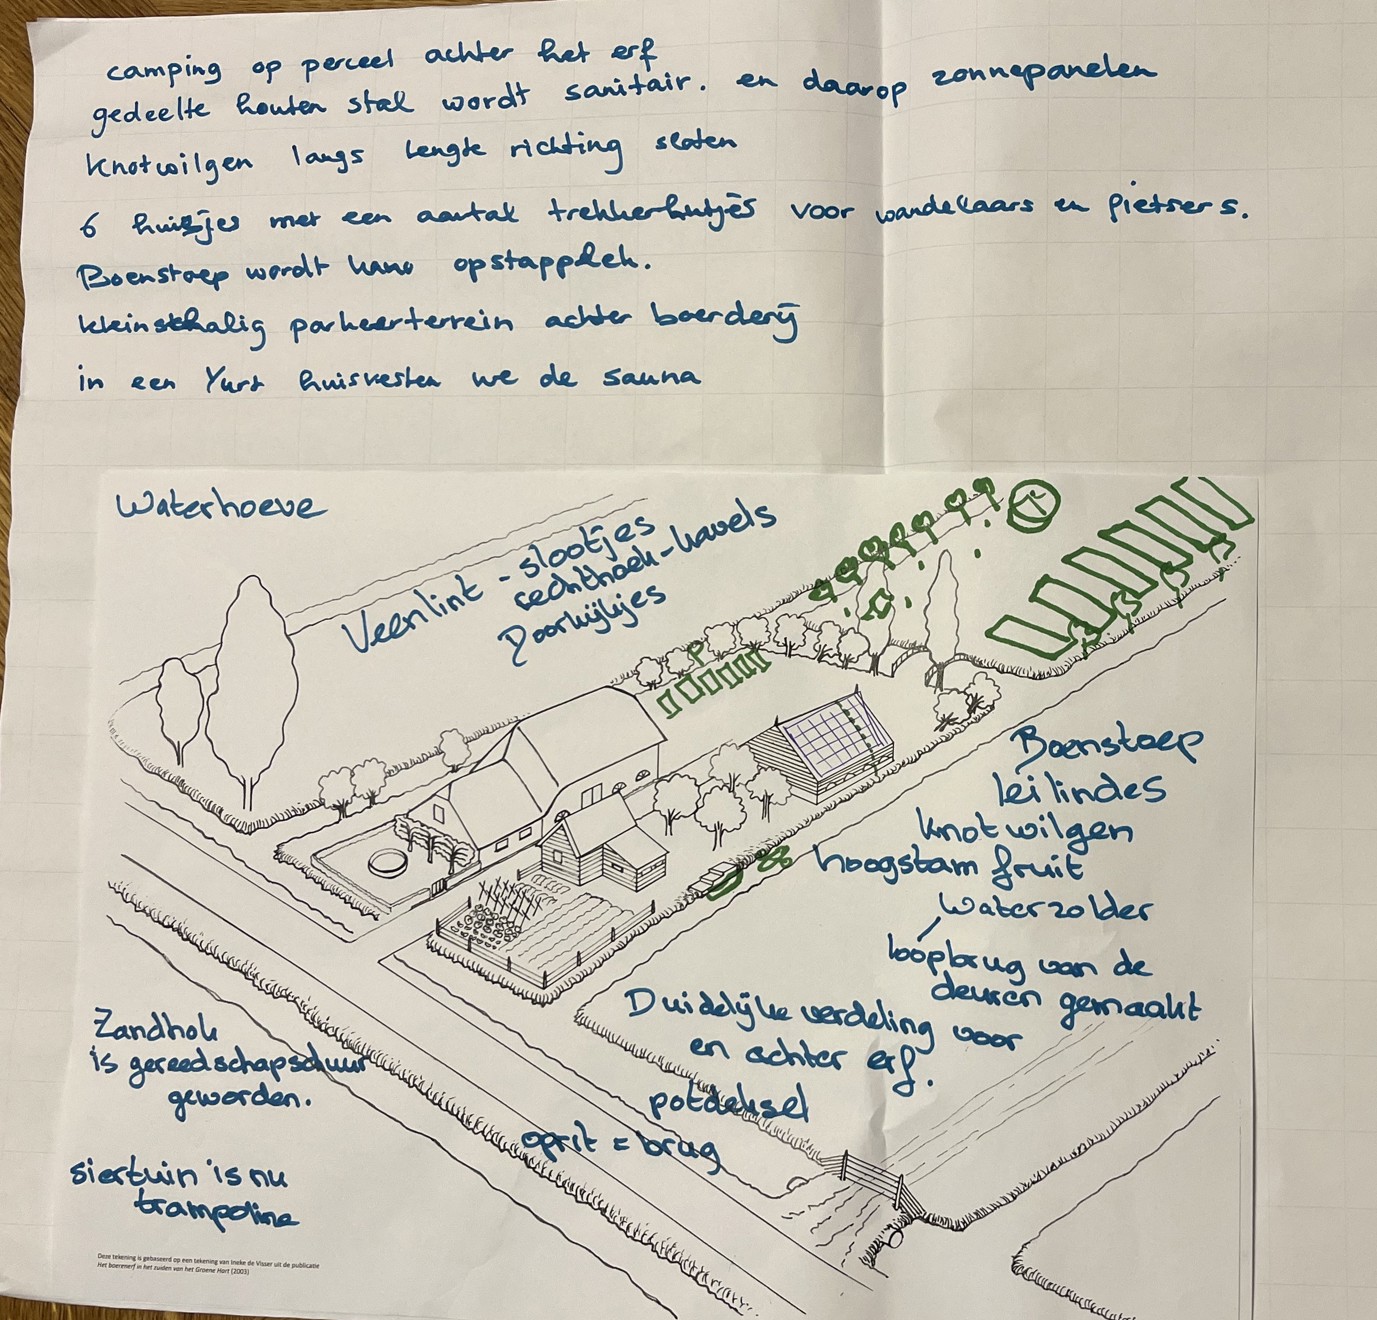 camping op perceel achter het erf
gedeelte houten stal wordt sanitair. en daarop zonnepanelen
Knotwilgen langs lengte richting sloten
6 huisjes met een aantal trekkershutjes voor wandelaars en fietsers.
Boenstoep wordt kano opstapplek.
kleinschalig parkeerterrein achter boerderij
in een Yurt huisvesten we de sauna
Waterhoeve
Veenlint - slootjes
rechthoek-kavels
Doorkijkjes
P
Boenstoep
leilindes
knotwilgen
hoogstam fruit
waterzolder
loopbrug van de
deuren gemaakt
Duidelijke verdeling voor
en achter erf.
potdeksel
oprit = brug
Zandhok
is gereedschapschuur
geworden.
siertuin is nu
trampoline
Deze tekening is gebaseerd op een tekening van Ineke de Visser uit de publicatie
Het boerenerf in het zuiden van het Groene Hart (2003)